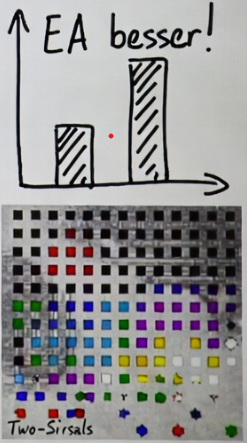 EA besser!
Two-Sirsals